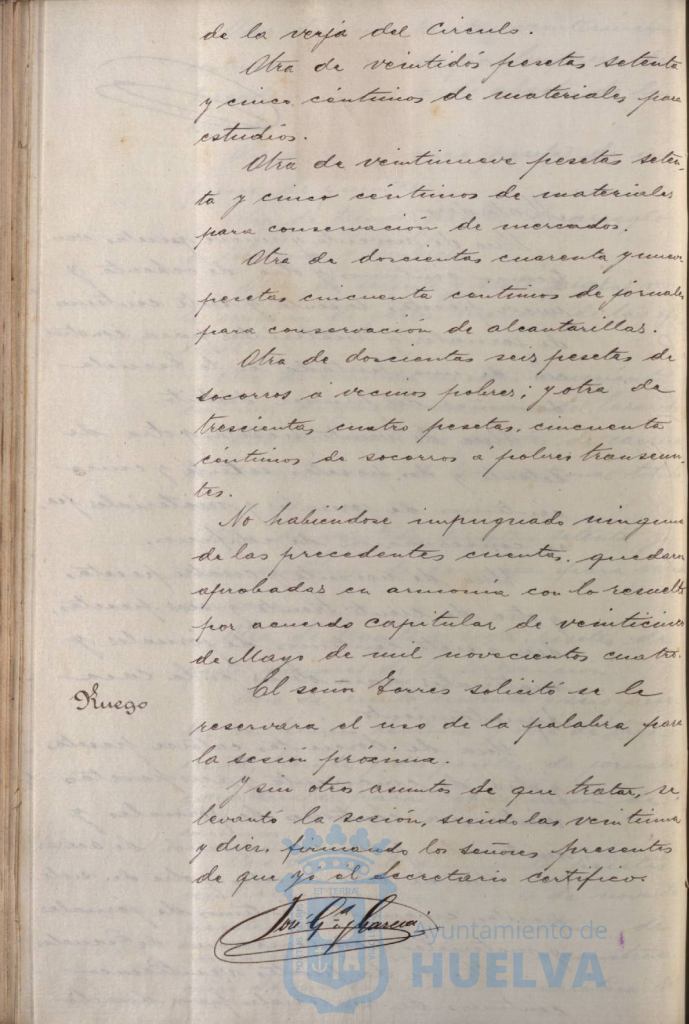 de la verja del Circulo.
Otra de veintidós pesetas setenta
y cinco céntimos de materiales para
estudios.
Otra de veintinueve pesetas seten-
ta y cinco céntimos de materiales
para conservación de mercados.
Otra de doscientas cuarenta y nueve
pesetas cincuenta céntimos de jornales
para conservación de alcantarillas.
Otra de doscientas seis pesetas de
socorros á vecinos pobres; y otra de
trescientas cuatro pesetas, cincuenta
céntimos de socorros á pobres transeun-
tes.
No habiéndose impugnado ninguna
de las precedentes cuentas, quedaron
aprobadas en armonía con lo resuelto
por acuerdo capitular de veinticinco
de Mayo de mil novecientos cuatro.
Ruego
El señor Torres solicitó se le
reservara el uso de la palabra para
la sesión próxima.
Y sin otros asuntos de que tratar, se
levantó la sesión, siendo las veintiuna
y diez, firmando los señores presentes
de que yo el Secretario certifico.
José Gª y García
Ayuntamiento de
HUELVA